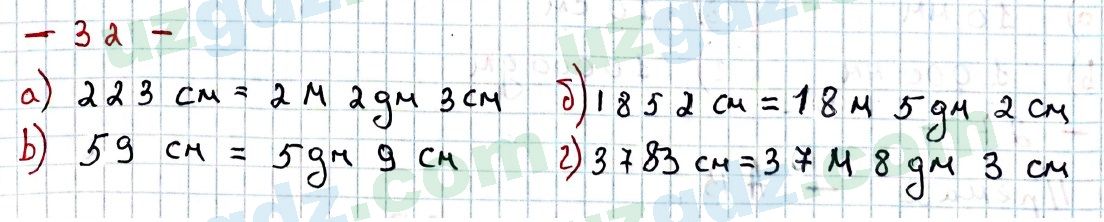 - 32 -
а) 223 см = 2 м 2 дм 3 см б) 1852 см = 18 м 5 дм 2 см
в) 59 см = 5 дм 9 см г) 3783 см = 37 м 8 дм 3 см
uzgdz.com